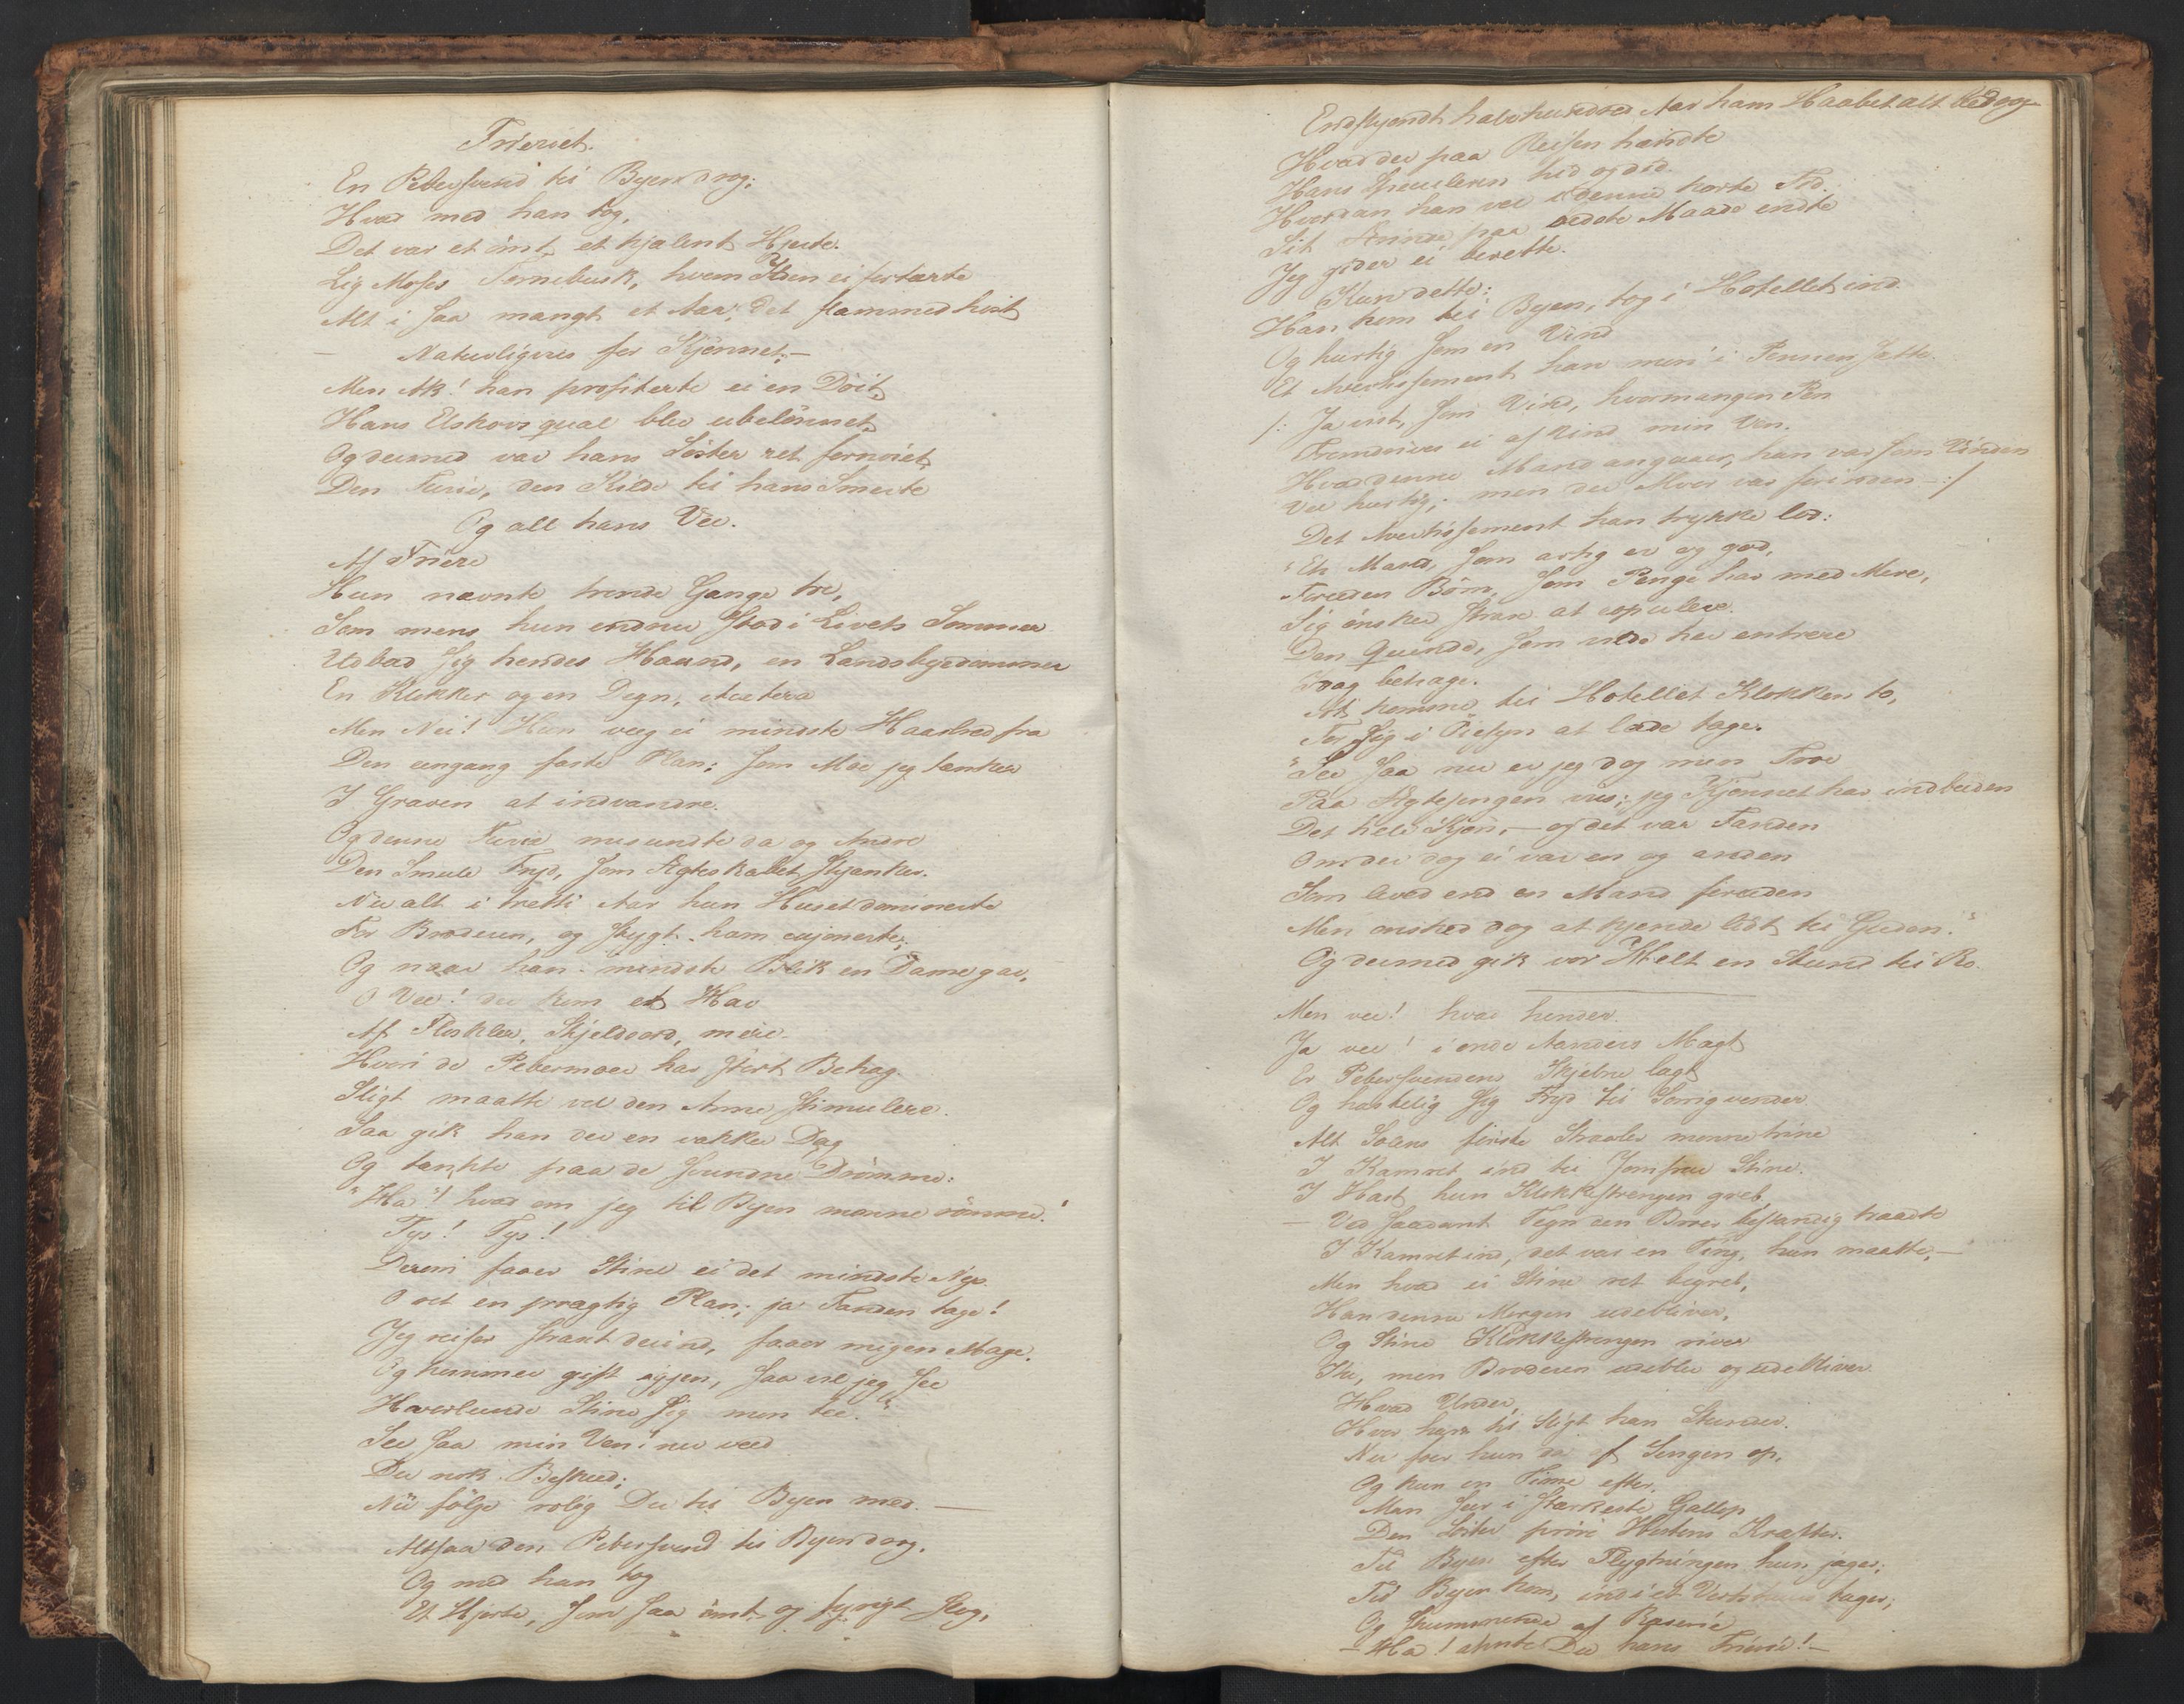 Frieriet.
En Pebersvend til Byen drog;
Hvad med han tog,
Det var et ömt, et kjælent Hjerte.
Lig Moses Tornebusk, hvem Ilden ei fortærte
Alt i saa mangt et Aar; det flammed hist
— Naturligviis for Kjönnet; —
Men Ak! han profiterte ei en Doit,
Hans Elskovsqual blev ubelönnet,
Og dermed var hans Söster ret fornöiet,
Den Furie, den Kilde til hans Smerte
Og all hans Vee.
Af Friere
Hun nævnte trende Gange tre,
Som mens hun endnu stod i Livets Sommer
Udbad sig hendes Haand, en Landsbyedommer
En Klokker og en Degn, &cetera
Men Nei! Hun veeg ei mindste Haarbred fra
Den eengang faste Plan: som Moe jeg tænker
I Graven at indvandre.
Og denne Furie misundte da og Andre
Den Smule Fryd, som Ægteskabet skjænker.
Nu alt i tretti Aar hun Huset dominerte
For Broderen, og stygt ham cujonerte;
Og naar han mindste Blik en Dame gav,
O Vee! der kom et Hav
Af Floskler, Skjeldsord, mere
Hvori de Pebermøer har stört Behag.
Sligt maatte vel den Arme stimulere.
Saa gik han der en vakker Dag
Og tænkte paa de svundne Drömme:
"Ha"! hvad om jeg til Byen monne römme!
Tys! Tys!
Derom faaer Stine ei det mindste Nys.
O ret en prægtig Plan; ja Fanden tage!
Jeg reiser strax derind, faaer mig en Mage,
Og kommer gift igjen, saa vil jeg see
Hvorlunde Stine sig mon tee."
See saa min Ven! nu veed
Du nok Beskeed;
Nu følge rolig Du til Byen med. —
Altsaa den Pebersvend til Byen drog,
Og med han tog
Et Hjerte, som saa ömt og fyrigt slog,
Endskjøndt halvhundred Aar ham Haabet alt
Hvad der paa Reisen hændte
Hans Speculeren hid og did.
Hvordan han vel i denne korte Tid
Sit Ærinde paa ædete Maade endte
Jeg gider ei berette.
Kun dette:
Han kom til Byen, tog i Hotellet ind.
Og hurtig som en Vind
Et Avertissement han mon' i Pennen sætte.
/: Ja vist, som Vind, hvormangen Pen
Fremdrives ei af Vind min Ven.
Hvad denne Mand angaaer, han var som Vinden
Vel hurtig; men der Alvor var forinden — :/
Det Avertissement han trykke lod:
"En Mand, som artig er og god,
Foruden Börn, som Penge har med Mere,
Sig önsker strax at copulere.
Den Qvinde, som vilde her entrere
Idag behage.
At komme til Hotellet Klokken to,
For sig i Øiesyn at lade tage.
"See saa nu er jeg dog min Troe
Paa Ægtesengen viis; jeg Kjønnet har indbuden
Det hele Kjøn, — og det var Fanden
Om der dog ei var en og anden
Som leved end en Mand foruden
Men önsked dog at kjende lidt til Guden."
Og dermed gik vor Helt en Stund til Ro.
Men vee! hvad hender.
Ja vee! i onde Aanders Magt
Er Pebersvendens Skjebne lagt
Og hastelig sig Fryd til Sorrig vender
Alt Solens förste Straaler monne trine
I Kamret ind til Jomfru Stine.
I Hast hun Klokkestrengen greb,
— Ved saadant Tegn den Broer bestandig traadte
I Kamret ind, det var en Ting, han maatte, —
Men hvad ei Stine ret begreb,
Han denne Morgen udebliver,
Og Stine Klokkestrengen river
Itu, men Broderen udeblev og udebliver
Hvad Under,
Hvor har til sligt han Stunder.
Nu foer hun da af Sengen op,
Og kun en Time efter,
Man seer i stærkeste Gallop
Den Söster pröve Hestens Kræfter.
Til Byen efter Flygtningen hun jager;
Til Byen kom, ind i et Vertshuus tager;
Og skummende af Raserie
— Ha! ahnte Du hans Frierie! —